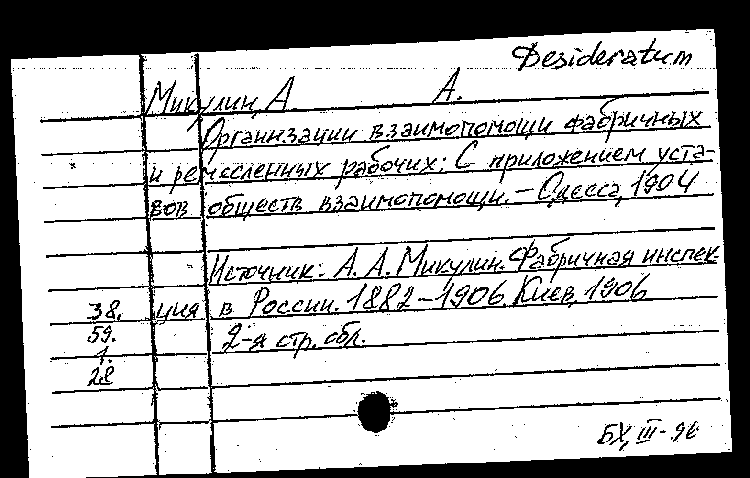 Desideratum
Микулин, А. А.
Организации взаимопомощи фабричных
и ремесленных рабочих: С приложением уста-
вов обществ взаимопомощи. – Одесса, 1904
Источник: А. А. Микулин. Фабричная инспек-
38. ция в России. 1882–1906. Киев, 1906
59. 2-я стр. обл.
1.
28
БХ, III-96